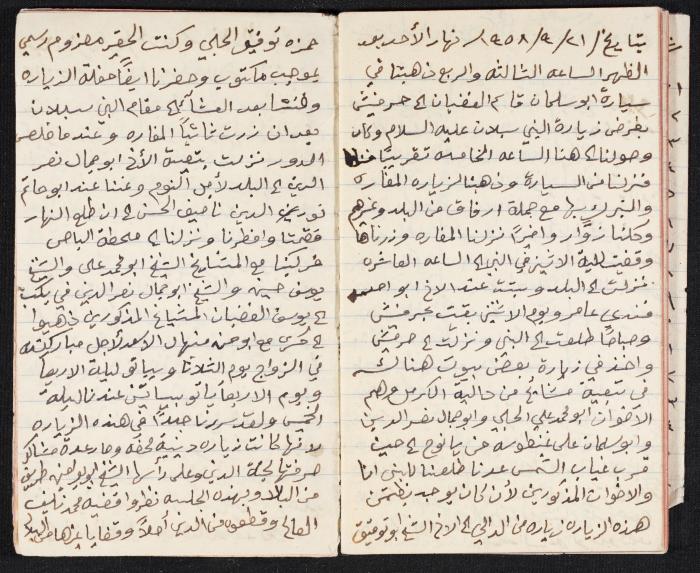 بتاريخ / ٢١ / ٩ / ١٩٥٨ / نهار الأحد بعد
الظهر الساعه الثالثه والربع ذهبنا في
سيارة ابو سلمان قاسم الغضبان الى حرفيش
بغرض زيارة النبي سبلان عليه السلام وكان
وصولنا الى هنا الساعه الخامسه تقريباً
فنزلنا من السيارة وذهبنا لزيارة المغاره
والتبرك بها مع جملة ارفاق من البلد وغيرهم
وكلنا زوار واخيراً نزلنا المغاره وزرناها
وقضيت ليلة الاثنين في النبي الى الساعه العاشره
نزلت الى البلد وبتت عند الاخ ابو احمد
فندي عامر ويوم الاثنين بقيت بحرفيش
وصباحاً طلعت الى النبي ونزلت الى حرفيش
واخذ في زيارة بعض بيوت هناك
في بقية مشايخ من دالية الكرمل وهم
الاخوان ابو محمد علي الحلبي وابو جمال نصر الدين
وابو سلمان علي غنطوسه من يانوح الى حيث
قرب غياب الشمس عدنا طلعنا للنبي انا
والاخوان المذكورين لأن كان يوجد بضمن
هذه الزياره زياره من الداليه الى الاخ الشيخ ابو توفيق
حمزه توفيق الحلبي وكنت الحقير معزوم رسمي
بموجب مكتوب وحضرنا ايضاً حفلة الزياره
وقمنا بعد العشا الى مقام النبي سبلان
بعد ان زرت ثانياً المغاره وعندما خلص
الدور نزلت بقية الأخ ابو جمال نصر
الدين الى البلد لأجل النوم ونمنا عند ابو حاتم
نور الدين نايف الحسن الى ان طلع النهار
قمنا وافطرنا ونزلنا الى محطة الباص
فركبنا مع المشايخ الشيخ ابو محمد علي والشيخ
يوسف حسين والشيخ ابو جمال نصر الدين
الى يوسف الغضبان المشايخ المذكورين ذهبوا
الى منهال الاسعد لأجل مباركيته
في الزواج يوم الثلاثا وبياتو ليلة الاربعا
ويوم الاربعا يأتو بياتين عندنا ليلة
الخميس ولقد سررنا جداً في هذه الزياره
لانها كانت زياره دينيه
صرفتها لجهة الدين وعلى رأسها الشيخ ابو يوسف امين طريف
من البلاد وبهذه الجلسه نظروا قضية محمد نايف
الصالح وقطعوه من الدين أصلاً وقضايا غيرها